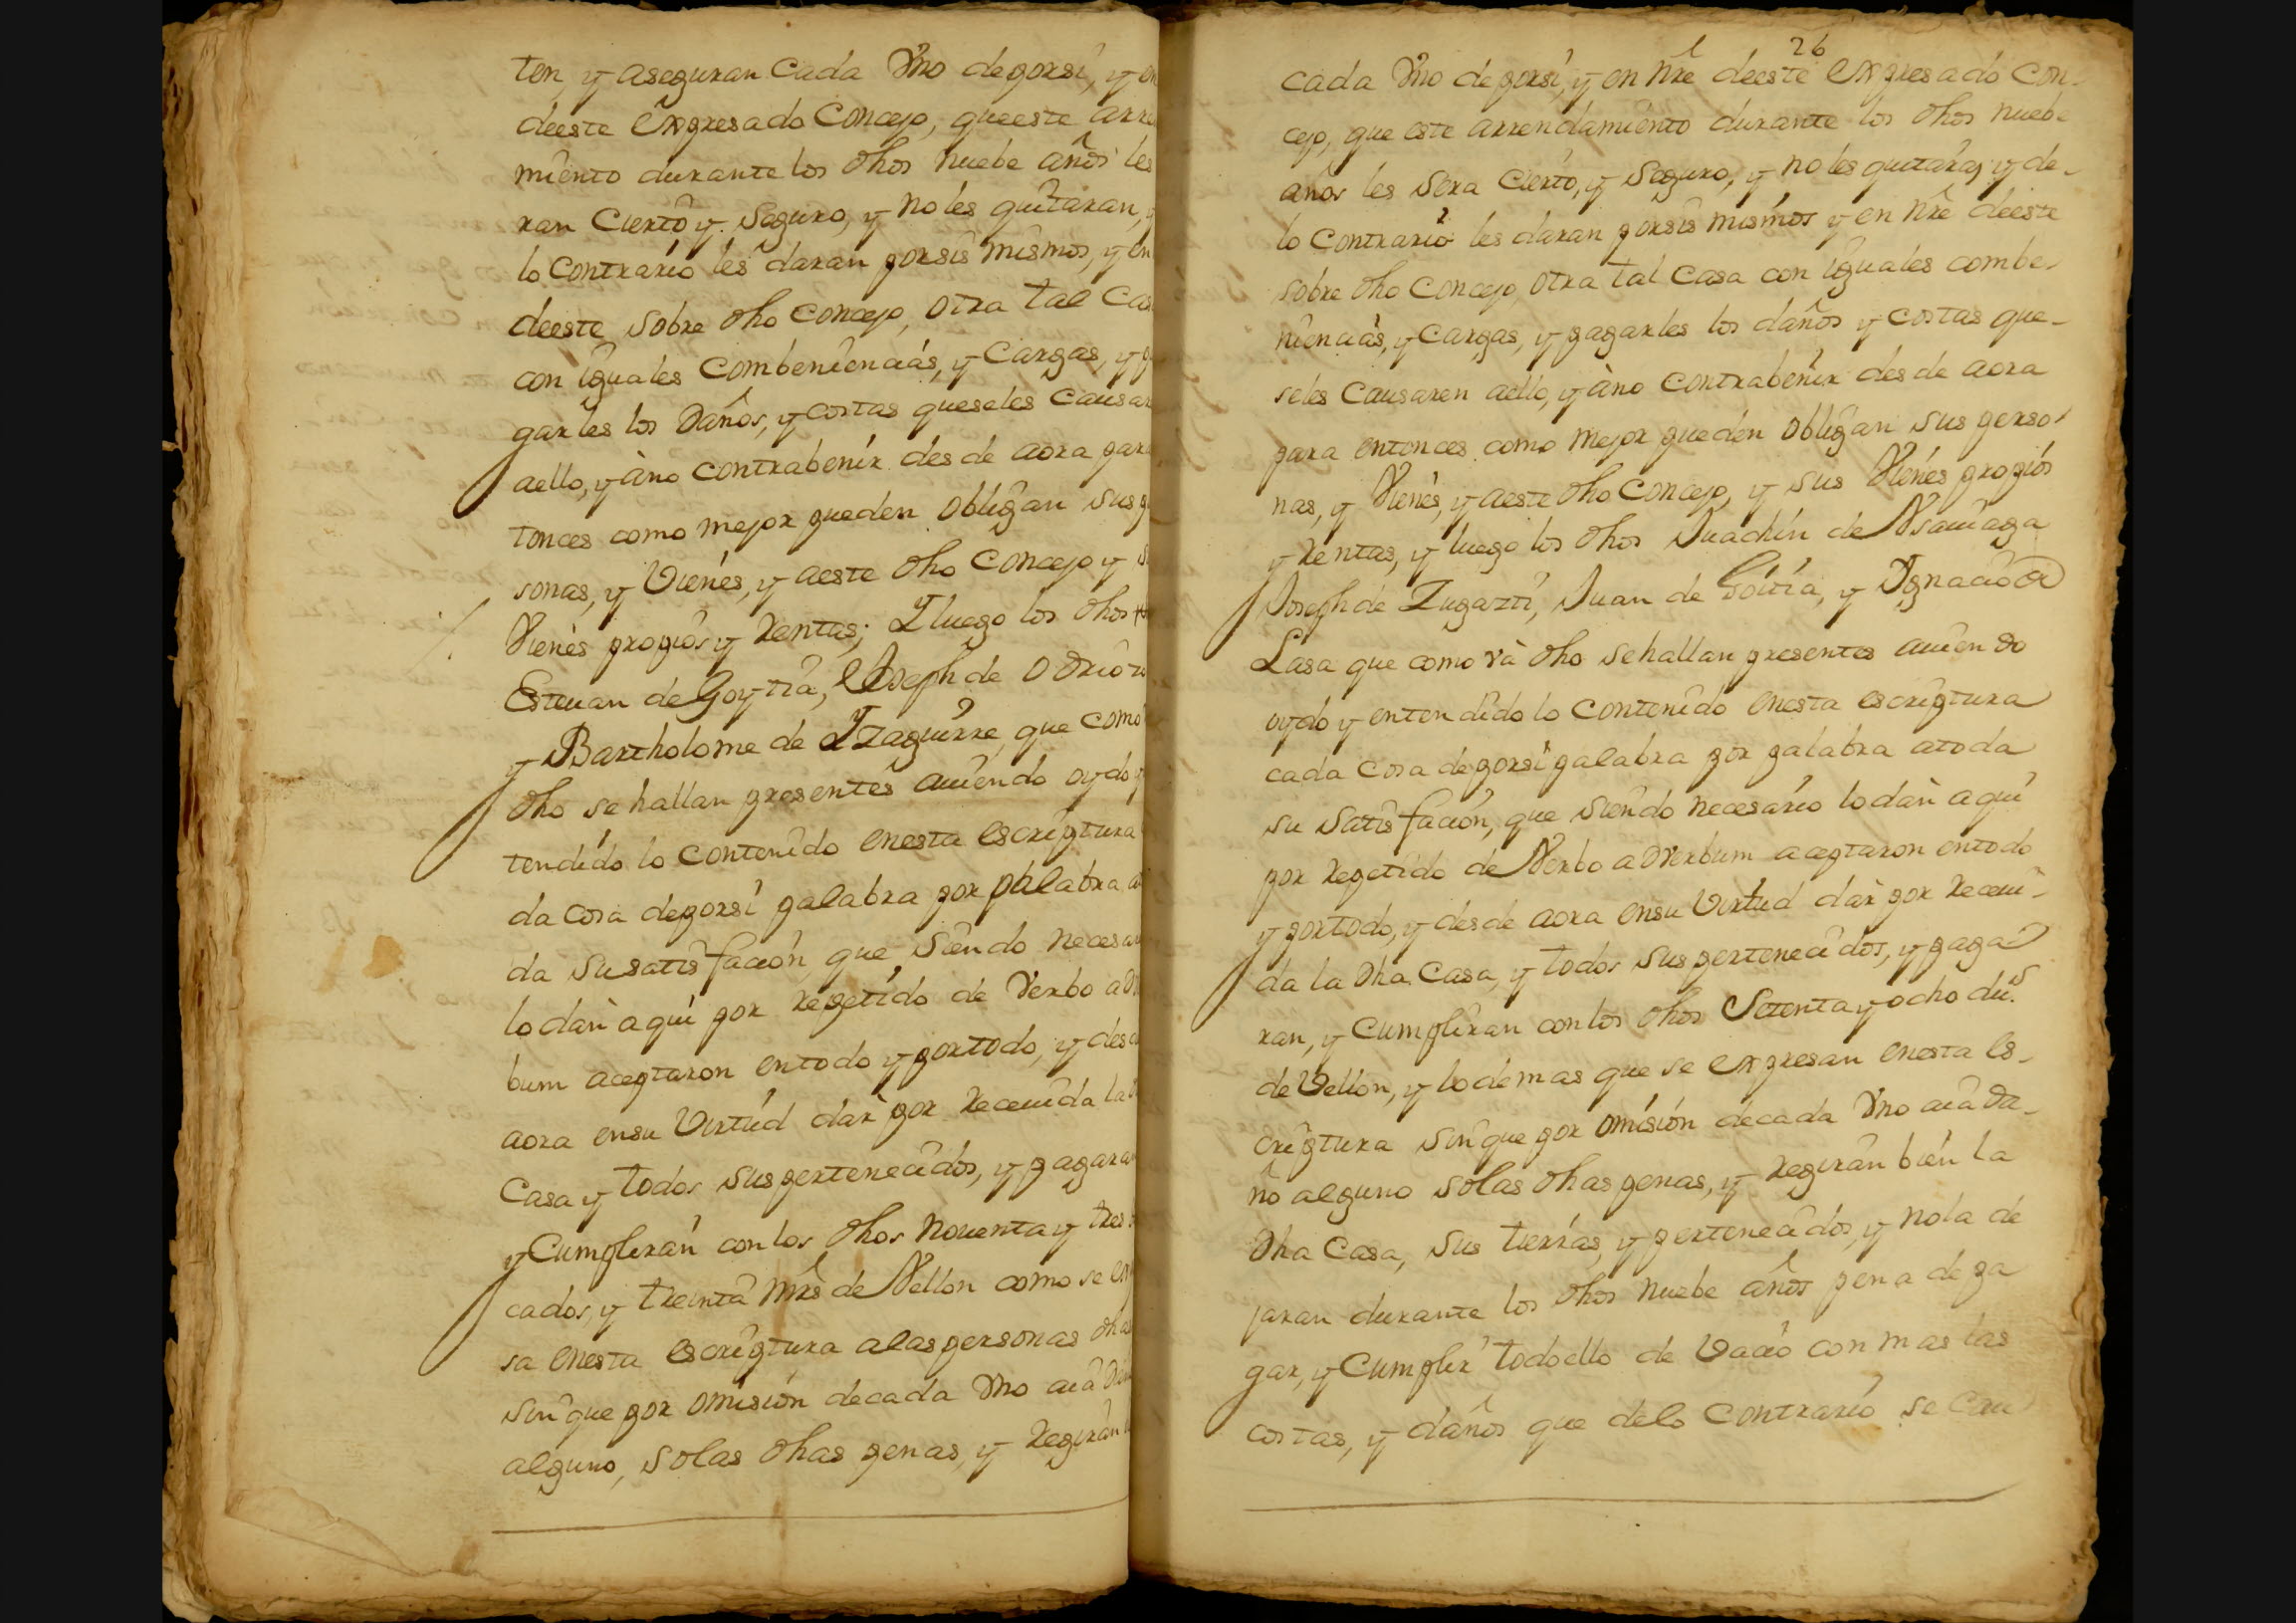 ten, y aseguran cada Vno deporsi, y en
deeste expresado Concejo, queeste arre
miento durante los dhos nuebe años les
ran Cierto y Seguro, y noles quitaran, y
lo Contrario les daran porsis mismos, y en
deeste sobre dho Concejo, otra tal Cas
con iguales Combeniencias, y Cargas, y p
garles los Daños, y costas queseles Causar
aello, y àno contrabenir desde aora para
tonces como mejor pueden obligan sus p
sonas, y Vienes, y aeste dho Concejo y s
Vienes propios y Rentas; Y luego los dhos
Esteuan de Goytia, Joseph de Odrioz
y Bartholome de Yzaguirre, que como
dho se hallan presentes auiendo oydo y
tendido lo Contenido enesta escriptura
da cosa deporsi palabra por palabra a
da susatisfacion que siendo necesar
lo dan aqui por Repetido de Verbo adv
bum aceptaron entodo y portodo, y desd
aora ensu Virtud dan por Receuida la d
Casa y todos suspertenecidos, y pagara
y Cumpliran con los dhos Nouenta y tres
cados, y treinta mrs de Vellon como se ex
sa enesta escriptura alaspersonas dha
sin que por omision decada Vno aia d
alguno, solas dhas penas, y Regiran
26
cada Vno deporsi, y en nre deeste expresado Con-
cejo, que este arrendamiento durante los dhos nuebe
años les sera Cierto, y Seguro, y noles quitaran y de-
lo Contrario les daran porsis mismos y en nre deeste
sobre dho Concejo, otra tal Casa con iguales combe-
niencias, y Cargas, y pagarles los daños y costas que-
seles Causaren aello, y àno Contrabenir desde aora
para entonces como mejor pueden obligan sus perso-
nas, y Vienes, y aeste dho Concejo, y sus Vienes propios
y Rentas, y luego los dhos Juachin de
Joseph de Zugazti, Juan de Goitia, y Ygnacio de
Lasa que como và dho sehallan presentes auiendo
oydo y entendido lo Contenido enesta escriptura
cada cosa deporsi palabra por palabra atoda
su satisfacion, que siendo necesario lodan aqui
por Repetido de Verbo adverbum aceptaron entodo
y portodo, y desde aora ensu Virtud dan por Receui-
da la dha Casa, y todos suspertenecidos, y paga
ran, y Cumpliran conlos dhos Setenta y ocho dus.
de Vellon, y lodemas que se expresan enesta es-
criptura sin que por omision decada Vno aia da-
ño alguno solas dhas penas, y Regiran bien la
dha Casa, sus tierras, y pertenecidos, y nola de
jaran durante los dhos nuebe años pena de pa
gar, y Cumplir todo ello de Vacio con mas las
costas, y daños que delo Contrario se Cau